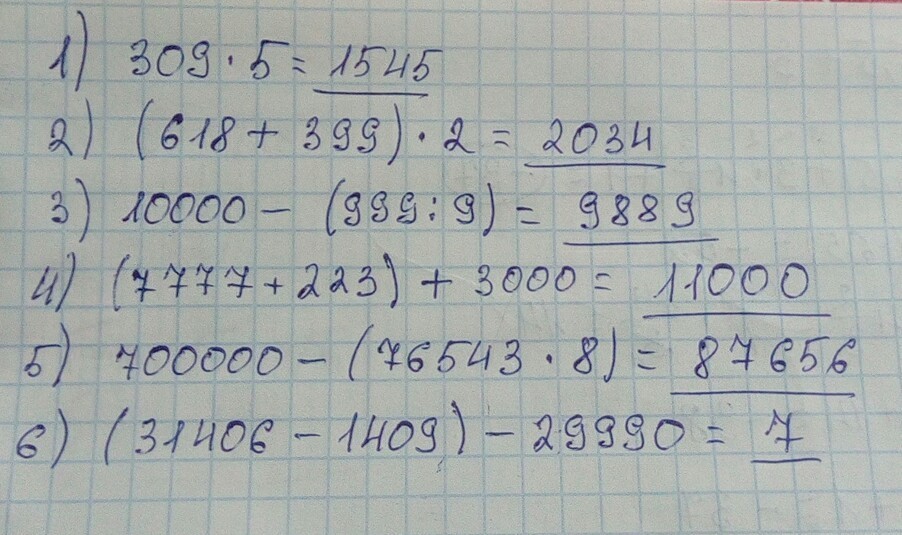 1) 309 · 5 = 1545
2) (618 + 399) · 2 = 2034
3) 10000 - (999 : 9) = 9889
4) (7777 + 223) + 3000 = 11000
5) 700000 - (76543 · 8) = 87656
6) (31406 - 1409) - 29990 = 7